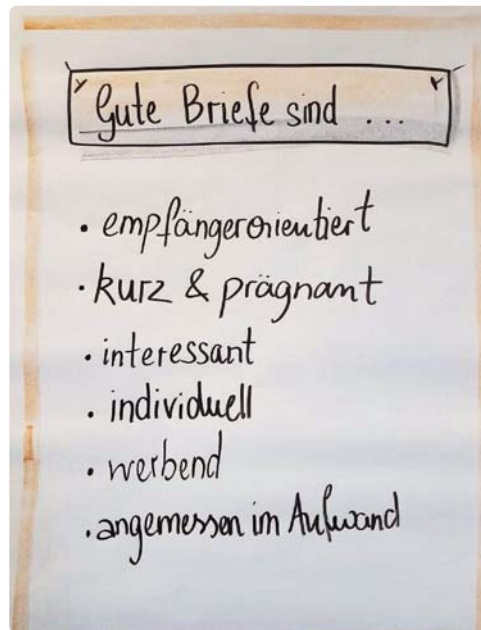 Gute Briefe sind ...
• empfängerorientiert
• kurz & prägnant
• interessant
• individuell
• werbend
• angemessen im Aufwand